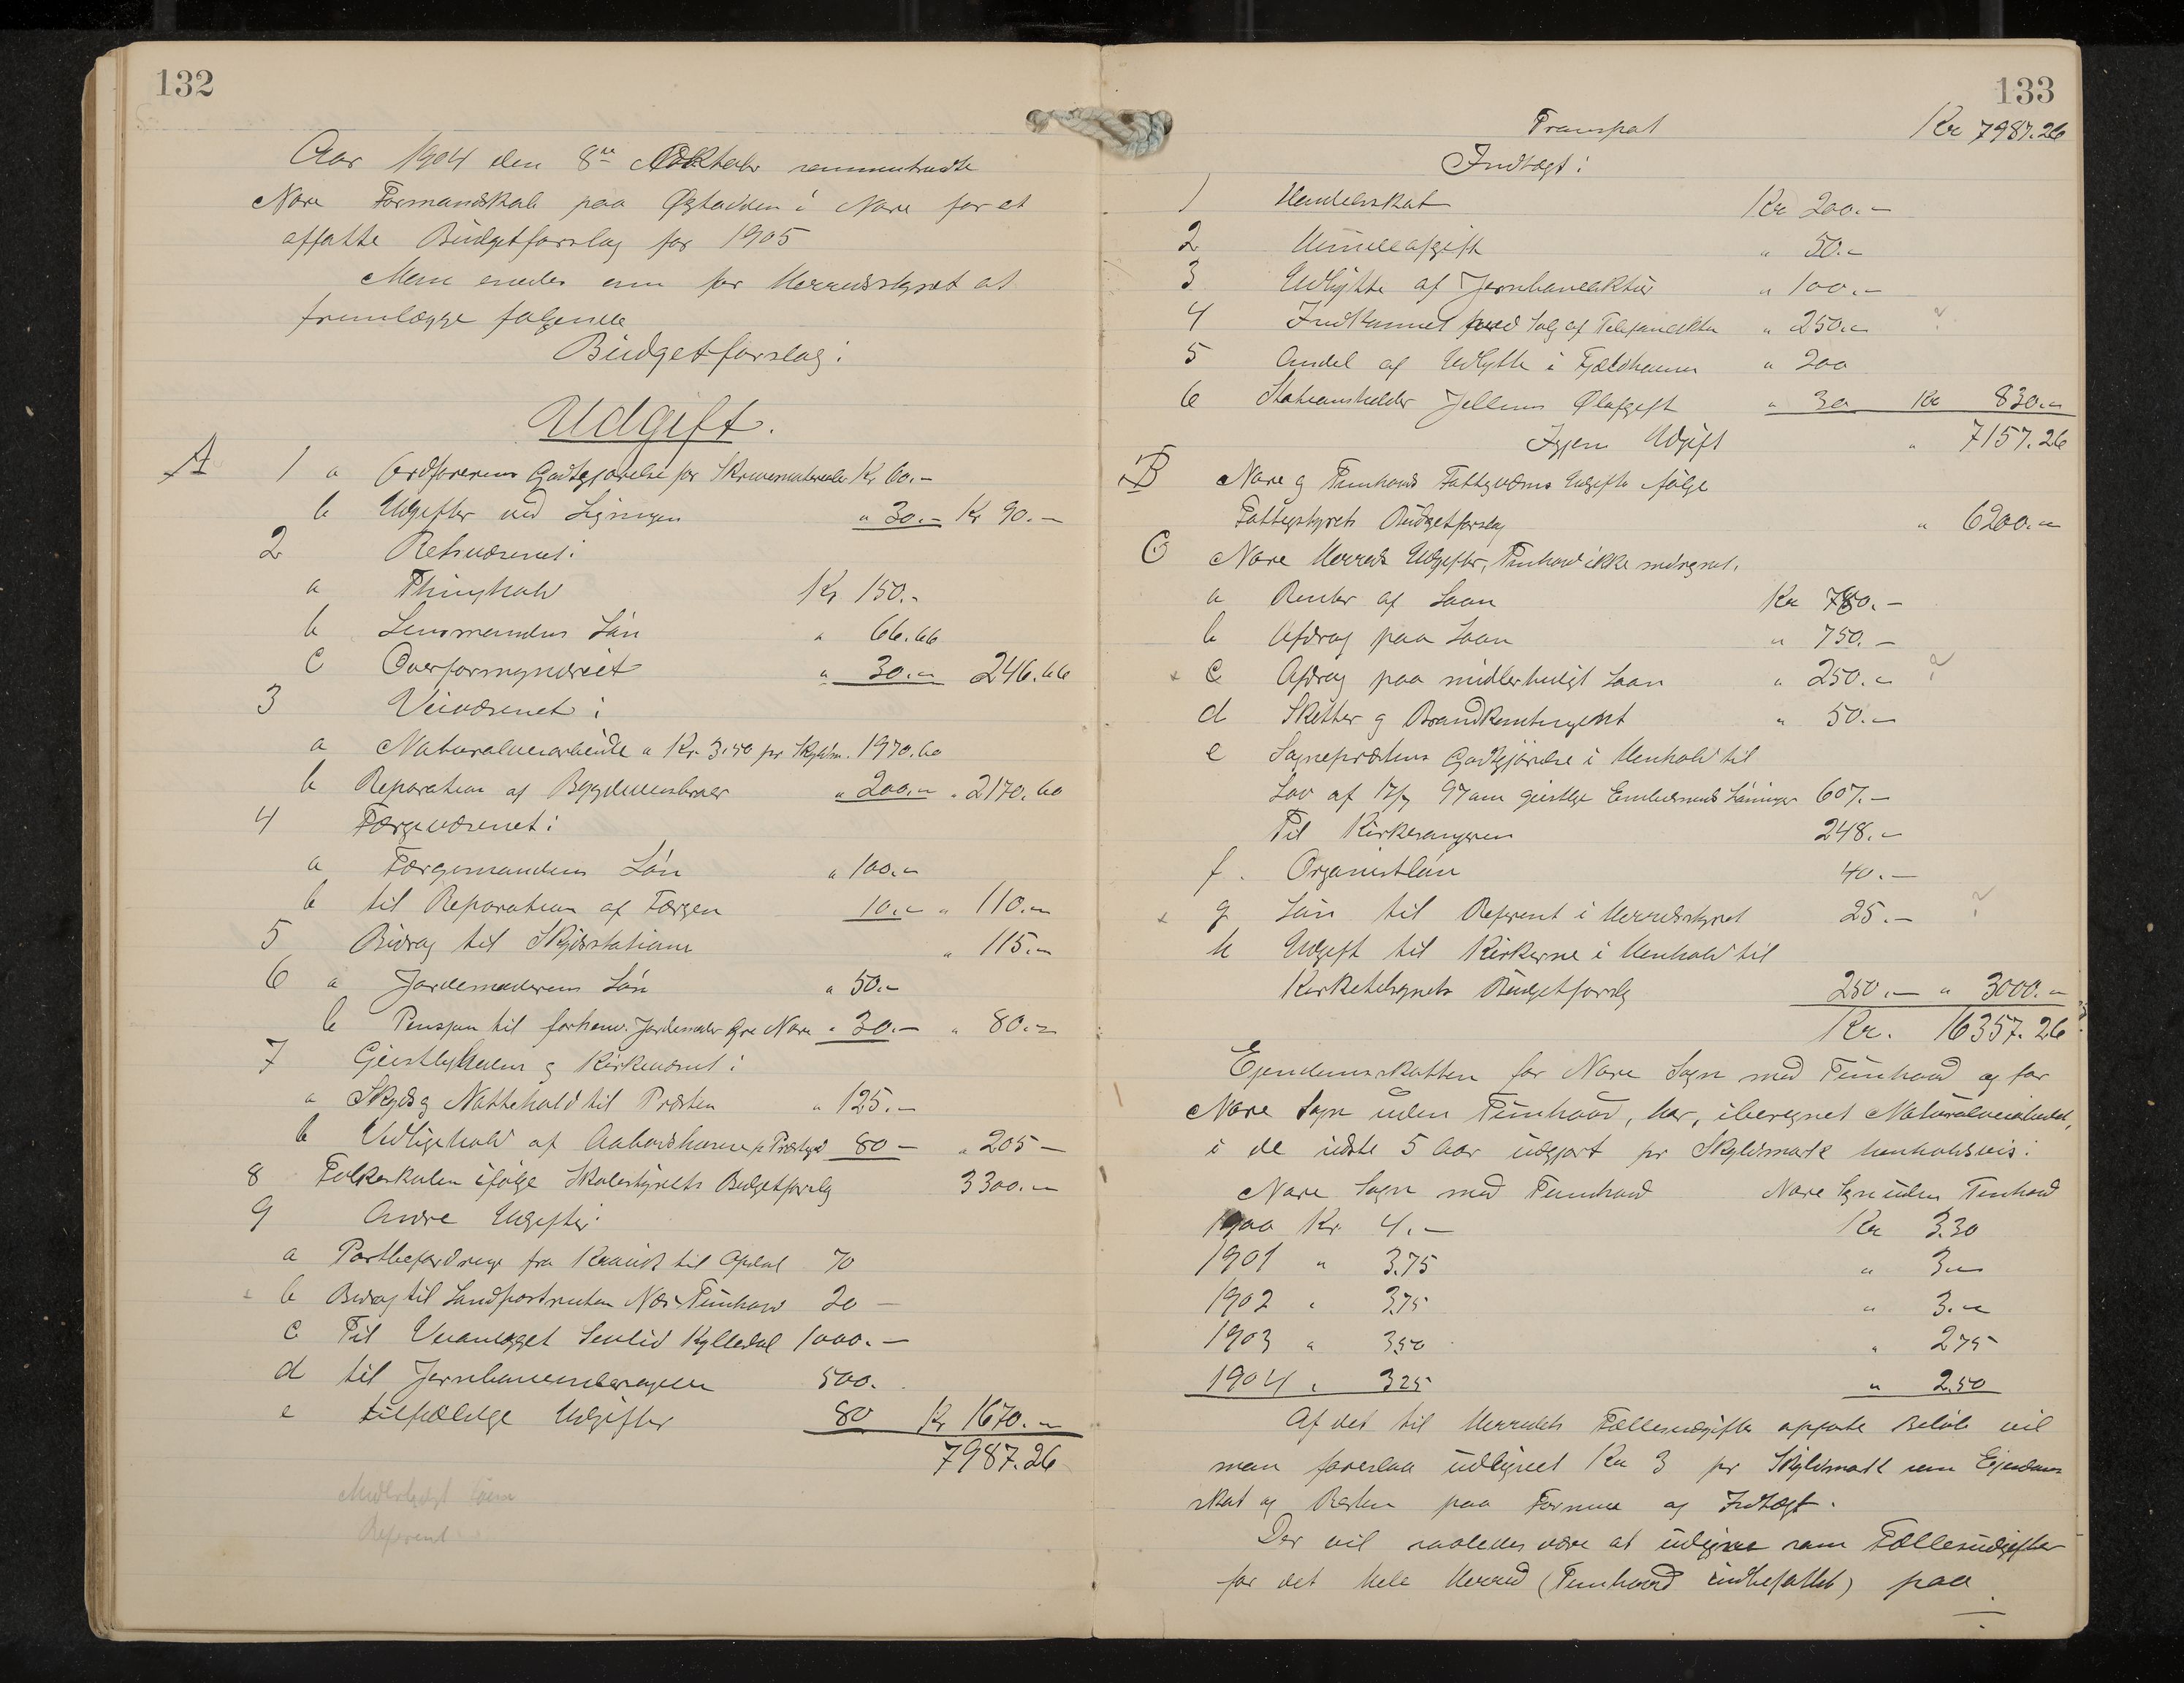 132
Aar 1904 den 8de Oktober sammentraadte
Nore Formandskab paa Øygarden i Nore for at
affatte Budgetforslag for 1905
Man enedes om for Herredsstyret at
fremlægge følgende
Budgetforslag:
Udgift.
A 1 a Ordførerens Godtgjørelse for Skrivematerialer Kr 60.-
b Udgifter ved Ligningen " 30.- Kr 90.-
2 Retsvæsenet:
a Thinghold Kr 150.-
b Lensmandens Løn " 66.66
c Overformynderiet " 30.- 246.66
3 Veivæsenet:
a Naturalveiarbeide a Kr. 3.50 pr Skyldm. 1970.60
b Reparation af Bygdeveisbroer " 200.- " 2170.60
4 Færgevæsenet:
a Færgemandens Løn " 100.-
b til Reparation af Færgen 10.- " 110.-
5 Bidrag til Skydsstationer " 115.-
6 a Jordemoderens Løn " 50.-
b Pension til forhenv. Jordemoder Nore " 30.- " 80.-
7 Geistligheden og Kirkevæsenet:
a Skyds og Nattehold til Præsten " 125.-
b Vedligehold af Aabodshusene p. Præstegd 80 - " 205 -
8 Folkeskolen ifølge Skolestyrets Budgetforslag 3300.-
9 Andre Udgifter:
a Postbefordring fra Kravik til Opdal 70
b Bidrag til Landpostruten Nore Tunhovd 20 -
c Til Veianlægget Senlid Kylledal 1000.-
d til Jernbaneundersøgelse 500.
e tilfældige Udgifter 80 Kr 1670.-
7987.26
Midlertidigt Laan
Referent
133
Transport Kr 7987.26
Indtægt:
1 Handelsskat Kr 200.-
2 Hundeafgift " 50.-
3 Udbytte af Jernbaneaktier " 100.-
4 Indkommet ved Salg af Telefonaktier " 250.- ?
5 Andel af Udbytte i Fjeldhamn " 200
6 Stationsholder Jellums Ølafgift " 30 Kr 830.-
Igjen Udgift " 7157.26
B Nore og Tunhovds Fattigvæsens Udgifter ifølge
Fattigstyrets Budgetforslag " 6200.-
C Nore Herreds Udgifter, Tunhovd ikke medregnet.
a Renter af Laan Kr 780.-
b Afdrag paa Laan " 750.-
c Afdrag paa midlertidigt Laan " 250.- ?
d Skatter og Brandkontingent " 50.-
e Sognepræstens Godtgjørelse i Henhold til
Lov af 17/7 97 om geistlige Embedsmænds Lønninger 607.-
Til Kirkesangeren 248.-
f. Organistløn 40.-
g Løn til Referent i Herredsstyret 25.- ?
h Udgift til Kirkerne i Henhold til
Kirketilsynets Budgetforslag 250.- " 3000.-
Kr. 16357.26
Ejendomsskatten for Nore Sogn med Tunhovd og for
Nore Sogn uden Tunhovd, har, iberegnet Naturalveiarbeidet,
i de sidste 5 Aar udgjort pr Skyldmark henholdsvis:
Nore Sogn med Tunhovd Nore Sogn uden Tunhovd
1900 Kr. 4.- Kr 3.30
1901 " 3.75 " 3.-
1902 " 3.75 " 3.-
1903 " 3.50 " 2.75
1904 " 3.25 " 2.50
Af det til Herredets Fællesudgifter opførte Beløb vil
man foreslaa udlignet Kr 3 pr Skyldmark som Ejendoms
skat og Resten paa Formue og Indtægt.
Der vil saaledes være at udligne som Fællesudgifter
for det hele Herred (Tunhovd indbefattet) paa